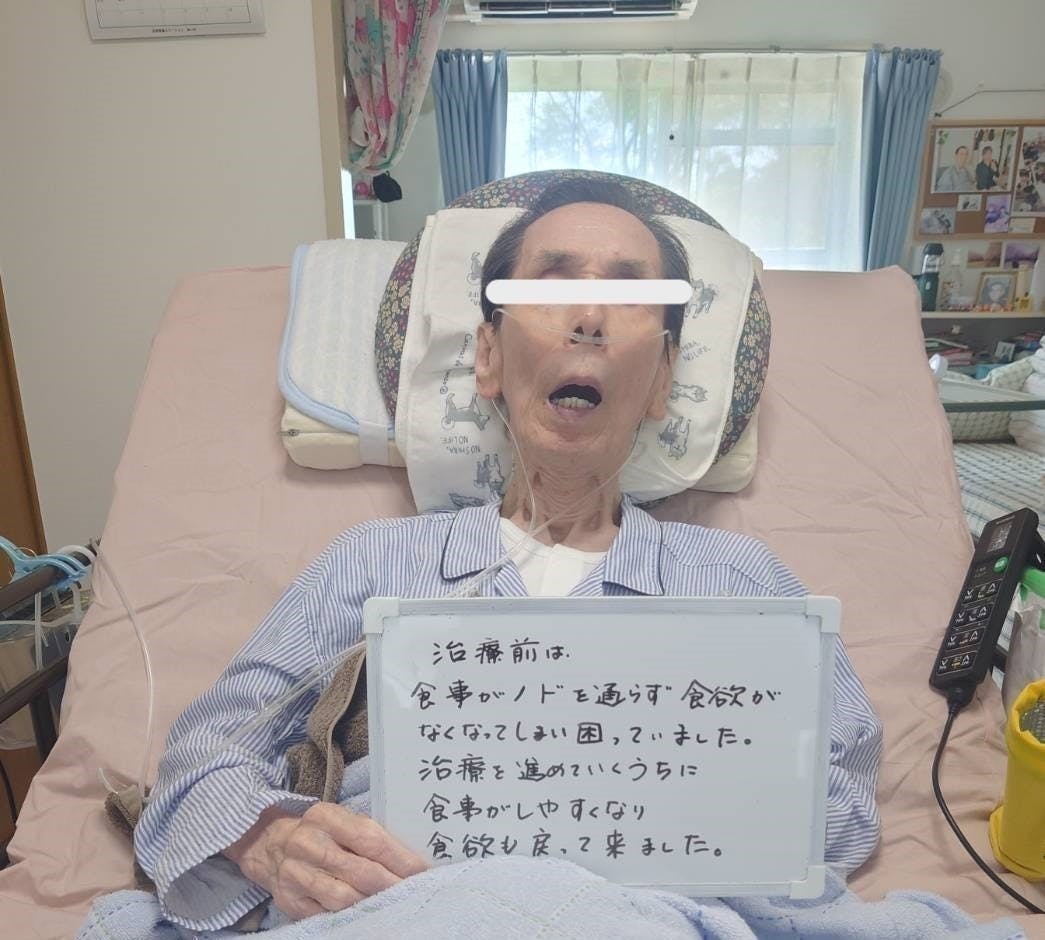 治療前は、
食事がノドを通らず食欲が
なくなってしまい困っていました。
治療を進めていくうちに
食事がしやすくなり
食欲も戻って来ました。
NO LIFE.
NOSHIRA,
NO LIFE.